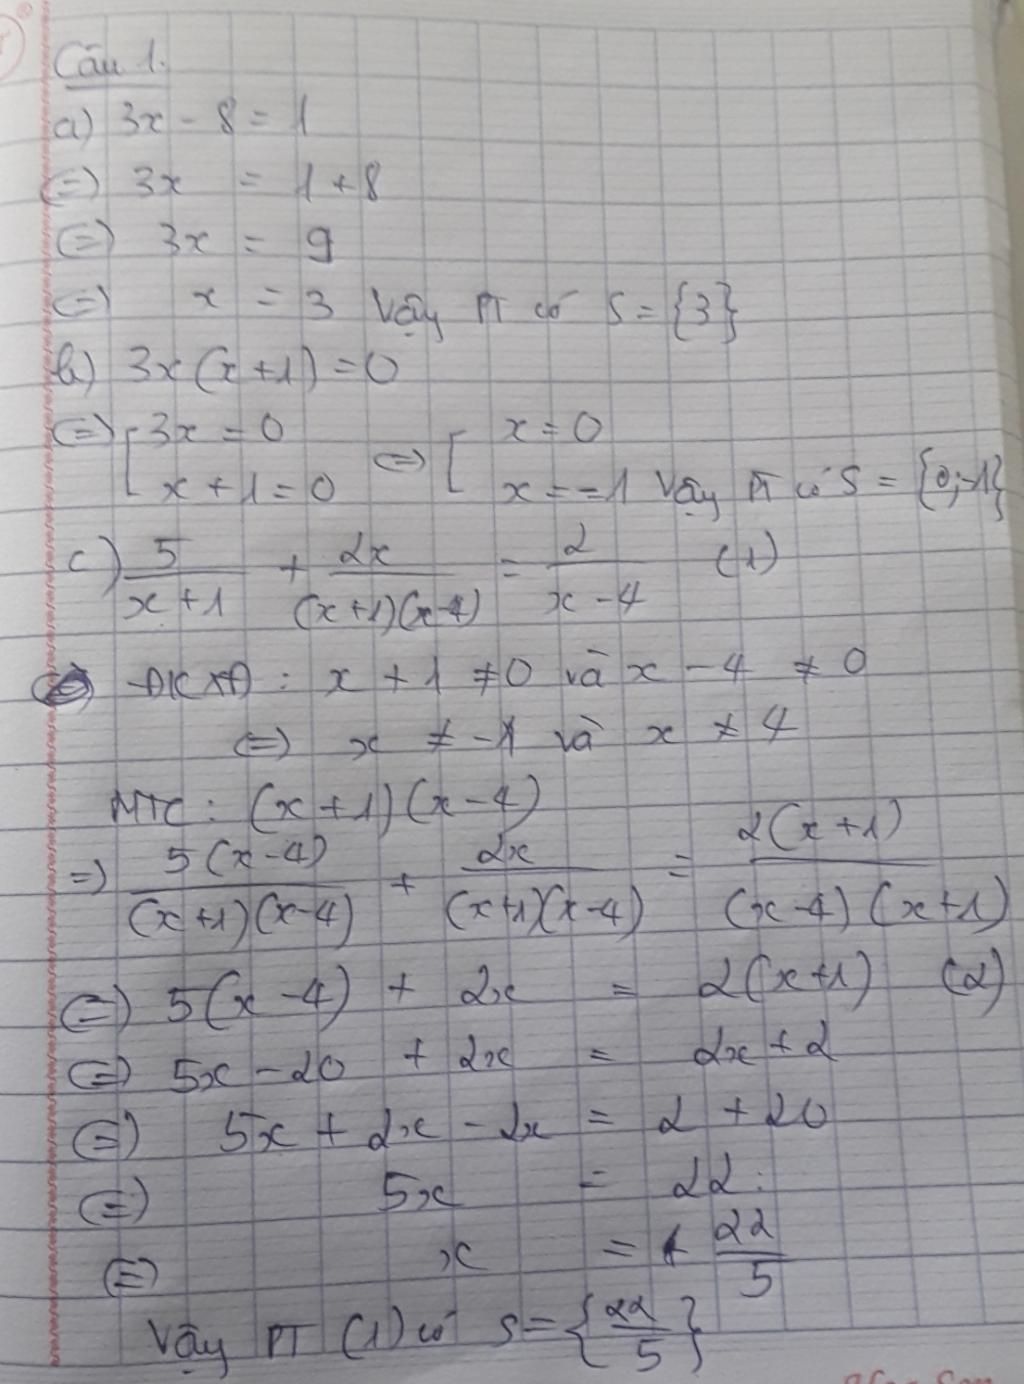 Câu 1.
a) 3x - 8 = 1
(=) 3x = 1 + 8
(=) 3x = 9
(=) x = 3 Vậy PT có S = {3}
b) 3x(x+1) = 0
(=) [3x = 0 <=> [x = 0
x + 1 = 0 x = -1 Vậy PT có S = {0; -1}
c) 5/(x+1) + 2x/((x+1)(x-4)) = 2/(x-4) (1)
ĐKXĐ : x + 1 ≠ 0 và x - 4 ≠ 0
(=) x ≠ -1 và x ≠ 4
MTC : (x+1)(x-4)
=) 5(x-4)/((x+1)(x-4)) + 2x/((x+1)(x-4)) = 2(x+1)/((x-4)(x+1))
(=) 5(x-4) + 2x = 2(x+1) (2)
(=) 5x - 20 + 2x = 2x + 2
(=) 5x + 2x - 2x = 2 + 20
(=) 5x = 22
(=) x = 22/5
Vậy PT (1) có S = {22/5}